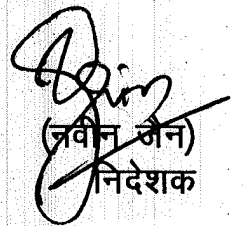 (नवीन जैन)
निदेशक